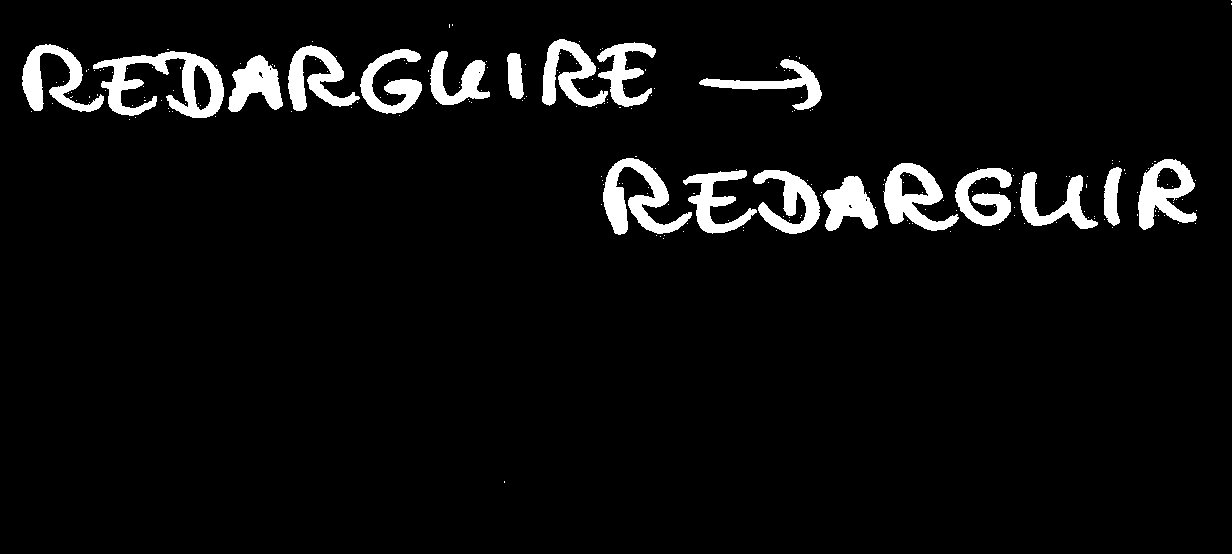 REDARGUIRE →
REDARGUIR